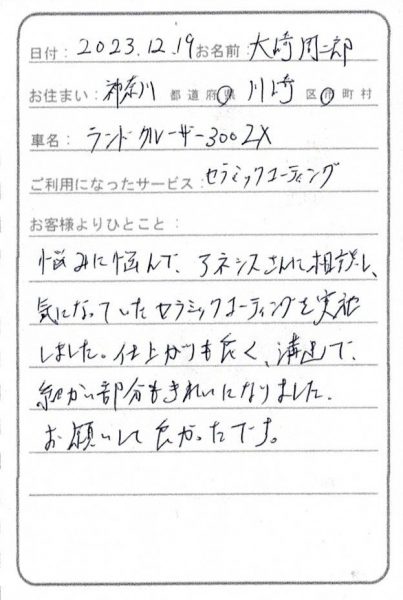 日付：2023.12.19 お名前：大崎周二郎
お住まい：神奈川 都道府県 川崎 区市町村
車名：ランドクルーザー300ZX
ご利用になったサービス：セラミックコーティング
お客様よりひとこと：
悩みに悩んで、アネシスさんに相談し、
気になっていたセラミックコーティングを実施
しました。仕上がりも良く、溝まで、
細かい部分もきれいになりました。
お願いして良かったです。